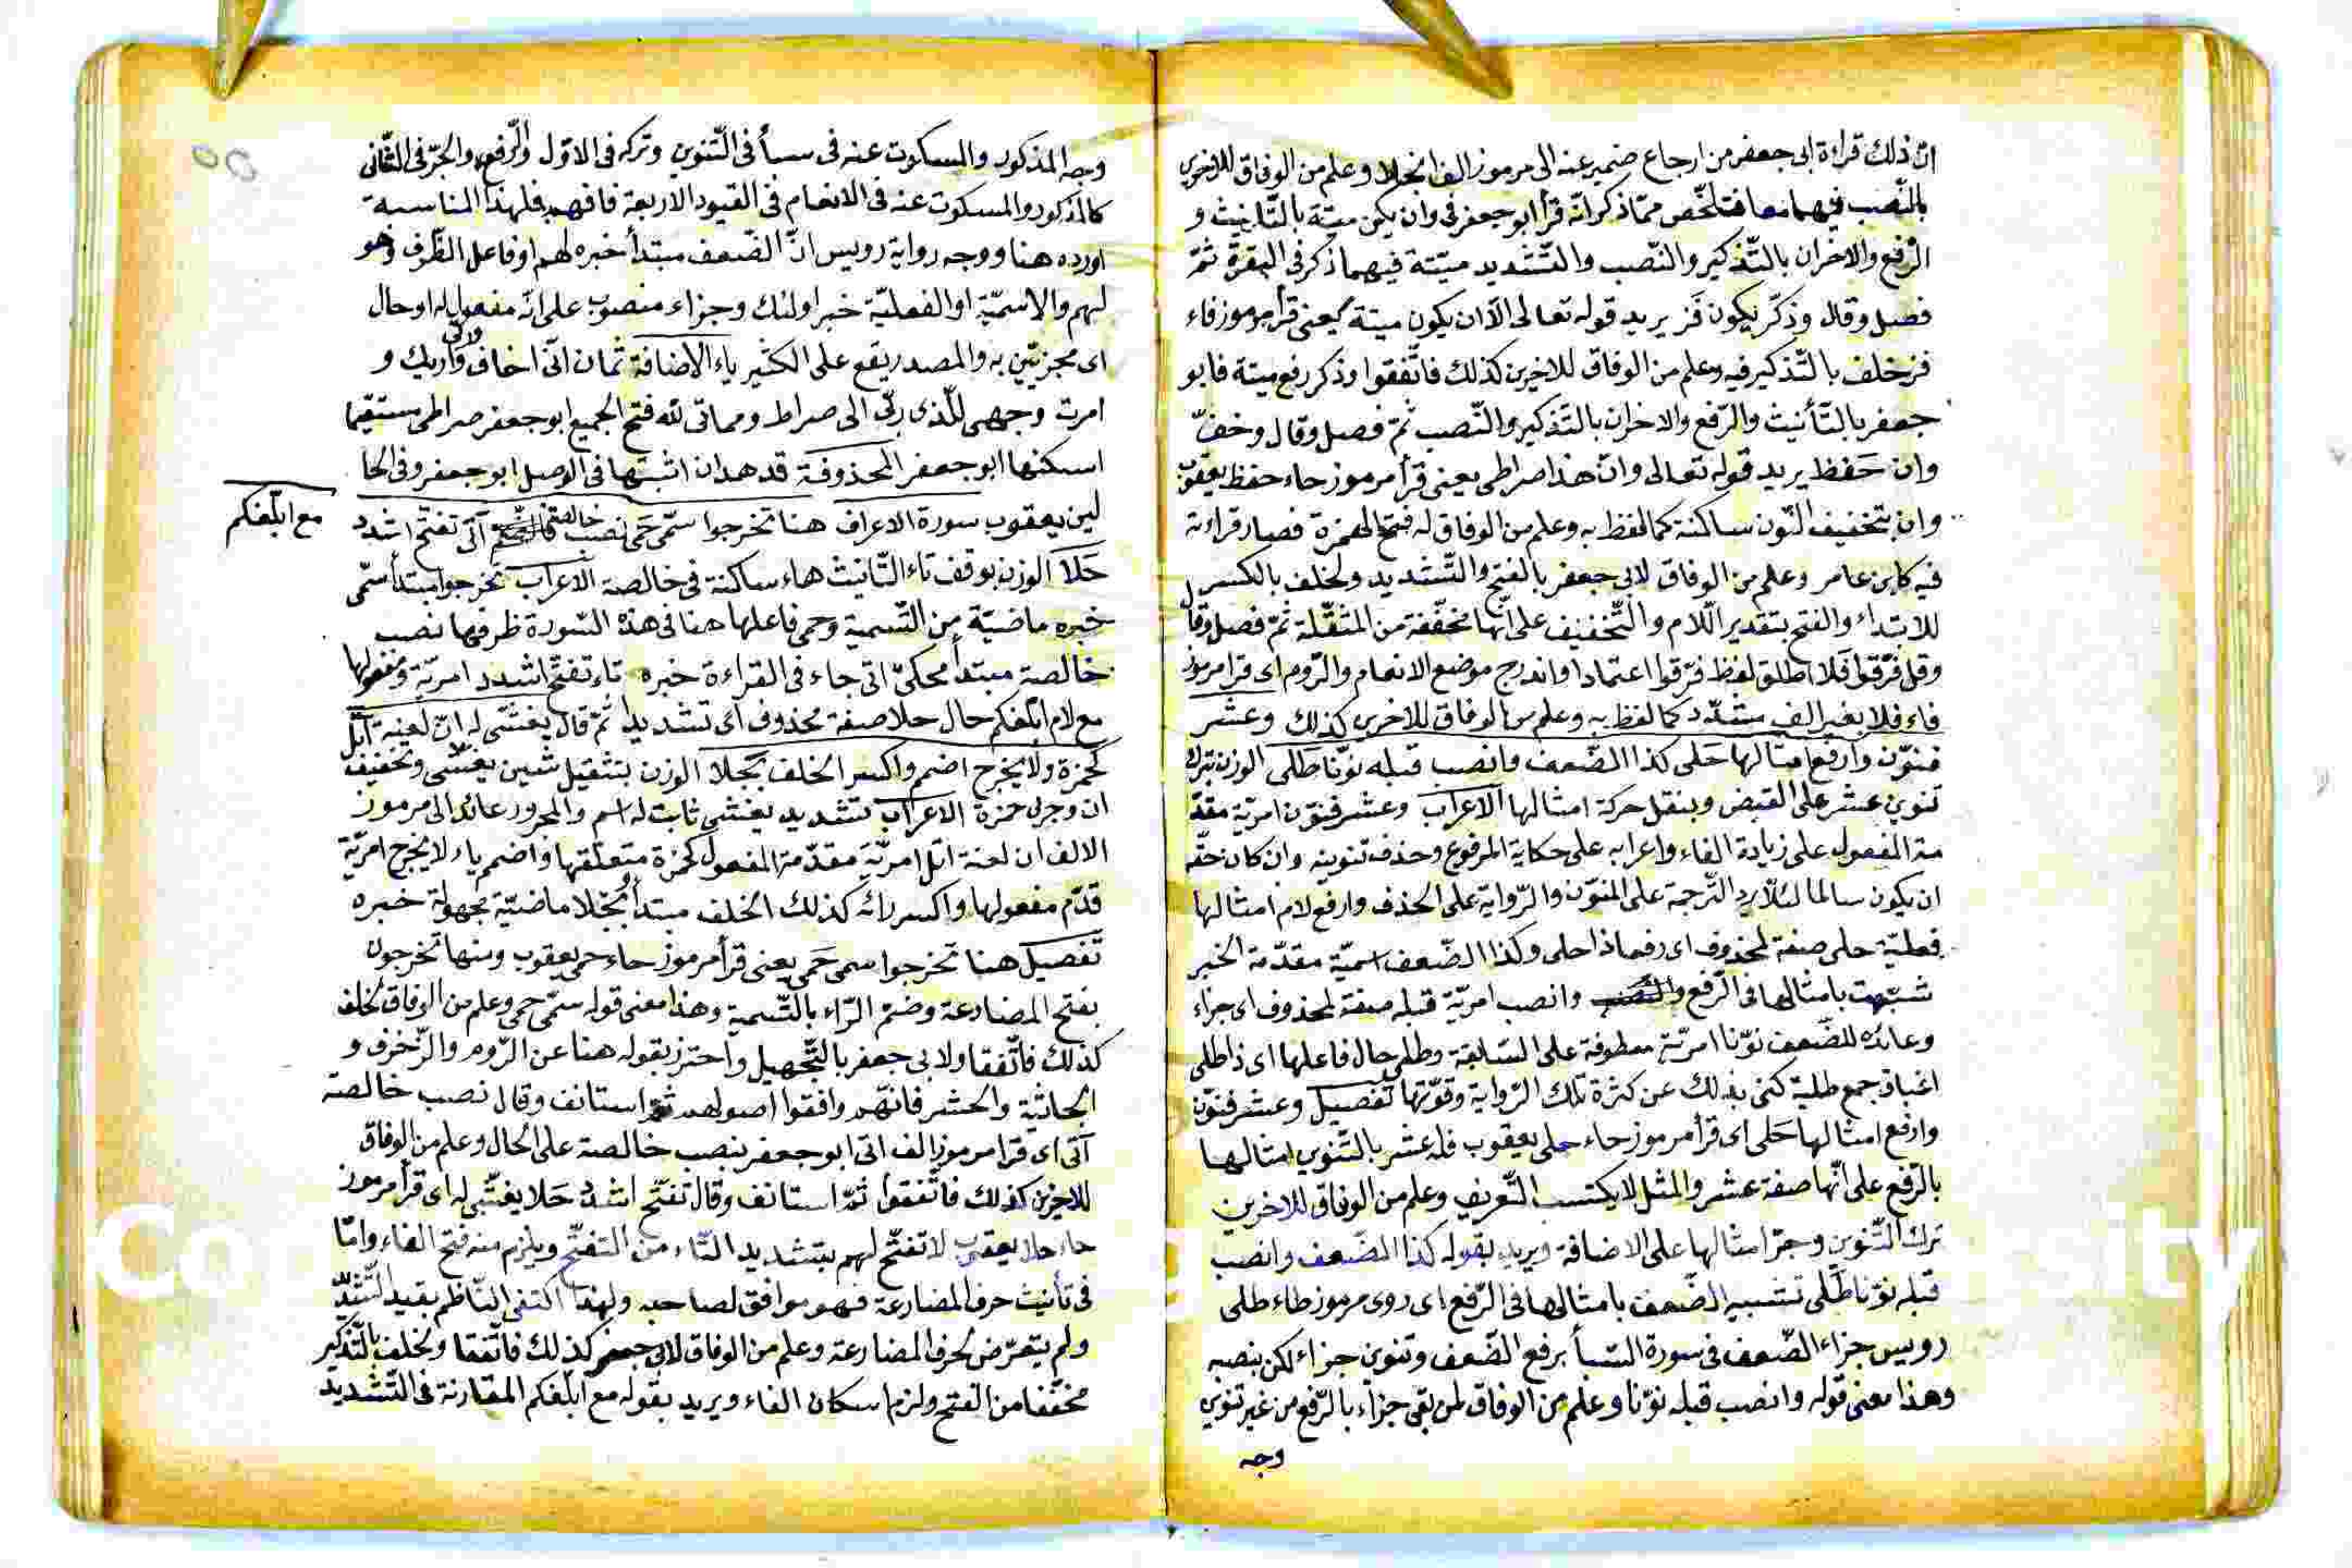 ان ذلك قراءة ابى جعفر من ارجاع ضمير عنه الى مرموز الف انجلا وعلم من الوفاق للاخرين
بالنّصب فيهما معا فتلخّص ممّا ذكر انّه قرأ ابو جعفر فى وان يكن ميتة بالتّانيث و
الرّفع والاخران بالتّذكير والنّصب والتّشديد ميّتة فيهما ذكر فى البقرة ثمّ
فصل وقال وذكّر يكون فز يريد قوله تعالى الّا ان يكون ميتة يعنى قرأ مرموز فاء
فز خلف بالتّذكير فيه وعلم من الوفاق للاخرين كذلك فاتّفقوا وذكر رفع ميتة فابو
جعفر بالتّأنيث والرّفع والاخران بالتّذكير والنّصب ثمّ فصل وقال وخفّ
وان حفظ يريد قوله تعالى وانّ هذا صراطى يعنى قرأ مرموز حاء حفظ يعقوب
وان بتخفيف النّون ساكنة كما لفظ به وعلم من الوفاق له فتح الهمزة فصار قراءته
فيه كابن عامر وعلم من الوفاق لابى جعفر بالفتح والتّشديد ولخلف بالكسر
للابتداء والفتح بتقدير اللّام والتّخفيف على انّها مخفّفة من المثقّلة ثمّ فصل وقال
وقل فرّقوا فلا اطلق لفظ فرّقوا اعتمادا واندرج موضع الانعام والرّوم اى قرأ مرموز
فاء فلا بغير الف مشدّد كما لفظ به وعلم من الوفاق للاخرين كذلك وعشر
فنوّن وارفع امثالها حلى كذا الضّعف وانصب قبله نوّنا طلى الوزن بترك
تنوين عشر على القبض وبنقل حركة امثالها الاعراب وعشر فنوّن امريّة مقدّ
مة المفعول على زيادة الفاء واعرابه على حكاية المرفوع وحذف تنوينه وان كان حقّه
ان يكون سالما لئلّا يرد الترجمة على المنوّن والرّواية على الحذف وارفع لام امثالها
فعليّة حلى صفة لمحذوف اى رفعا ذا حلى وكذا الضّعف اسميّة مقدّمة الخبر
شبّهت بامثالها فى الرّفع وانصب امريّة قبله صفة لمحذوف اى جزاء
وعائده للضّعف نوّنا امريّة معطوفة على السّابقة وطلى حال فاعلها اى ذا طلى
اعناق جمع طلية كنى بذلك عن كثرة تلك الرّواية وقوّتها تفصيل وعشر فنوّن
وارفع امثالها حلى اى قرأ مرموز حاء حلى يعقوب فله عشر بالتّنوين امثالها
بالرّفع على انّها صفة عشر والمثل لا يكتسب التّعريف وعلم من الوفاق للاخرين
ترك التّنوين وجرّ امثالها على الاضافة ويريد بقوله كذا الضّعف وانصب
قبله نوّنا طلى تشبيه الضّعف بامثالها فى الرّفع اى روى مرموز طاء طلى
رويس جزاء الضّعف فى سورة السّبأ برفع الضّعف وتنوين جزاء لكن بنصبه
وهذا معنى قوله وانصب قبله نوّنا وعلم من الوفاق لمن بقى جزاء بالرّفع من غير تنوين
وجه
وجه المذكور والسكوت عنه فى سبأ فى التّنوين وتركه فى الاوّل والرّفع والجرّ فى الثّانى
كالمذكور والمسكوت عنه فى الانعام فى القيود الاربعة فافهم فلهذا المناسبة
اورده هنا ووجه رواية رويس انّ الضّعف مبتدأ خبره لهم او فاعل الظّرف وهو
لهم والاسميّة او الفعليّة خبر اولئك وجزاء منصوب على انّه مفعول له او حال
اى مجزيّين به والمصدر يقع على الكثير ياء الاضافة ثمان انّى اخاف وانّى اريك و
امرت وجهى للّذى ربّى الى صراط ومماتى للّه فتح الجميع ابو جعفر صراطى مستقيما
اسكنها ابو جعفر المحذوفة قد هدان اثبتها فى الوصل ابو جعفر وفى الحا
لين يعقوب سورة الاعراف هنا تخرجوا سمّى حمى نصب خالصة اتى تفتح اشدد
مع ابلّغكم
حلا الوزن بوقف تاء التّانيث هاء ساكنة فى خالصة الاعراب تخرجوا مبتدأ سمّى
خبره ماضيّة من التّسمية وحمى فاعلها هنا فى هذه السّورة ظرفها نصب
خالصة مبتدأ محكىّ اتى جاء فى القراءة خبره تاء تفتح اشدد امريّة ومفعولها
مع لام ابلّغكم حال حلا صفة محذوف اى تشديدا ثمّ قال يغشّى له ان لعنة اتل
كحمزة ولا يخرج اضمم واكسر الخلف بجّلا الوزن بتثقيل شين يغشّى وتخفيف
ان وجرى حمزة الاعراب تشديد يغشّى ثابت له اسم والمجرور عائد الى مرموز
الالف ان لعنة اتل امريّة مقدّمة المفعول كحمزة متعلّقها واضمم ياء لا يخرج امريّة
قدّم مفعولها واكسر رائه كذلك الخلف مبتدأ بجّلا ماضيّة مجهولة خبره
تفصيل هنا تخرجوا سمى حمى يعنى قرأ مرموز حاء حمى يعقوب ومنها تخرجون
بفتح المضارعة وضمّ الرّاء بالتّسمية وهذا معنى قوله سمّى حمى وعلم من الوفاق لخلف
كذلك فاتّفقا ولابى جعفر بالتّجهيل واحترز بقوله هنا عن الرّوم والزّخرف و
الجاثية والحشر فانّهم وافقوا اصولهم ثمّ استانف وقال نصب خالصة
اتى اى قرأ مرموز الف اتى ابو جعفر بنصب خالصة على الحال وعلم من الوفاق
للاخرين كذلك فاتّفقوا ثمّ استانف وقال تفتّح اشدد حلا يغشّى له اى قرأ مرموز
حاء حلا يعقوب لا تفتّح لهم بتشديد التّاء من التفتّح ويلزم منه فتح الفاء وامّا
فى تأنيث حرف المضارعة فهو موافق لصاحبه ولهذا اكتفى النّاظم بقيد التّشديد
ولم يتعرّض لحرف المضارعة وعلم من الوفاق لابى جعفر كذلك فاتّفقا ولخلف بالتّذكير
مخفّفا من الفتح ولزم اسكان الفاء ويريد بقوله مع ابلّغكم المقارنة فى التّشديد